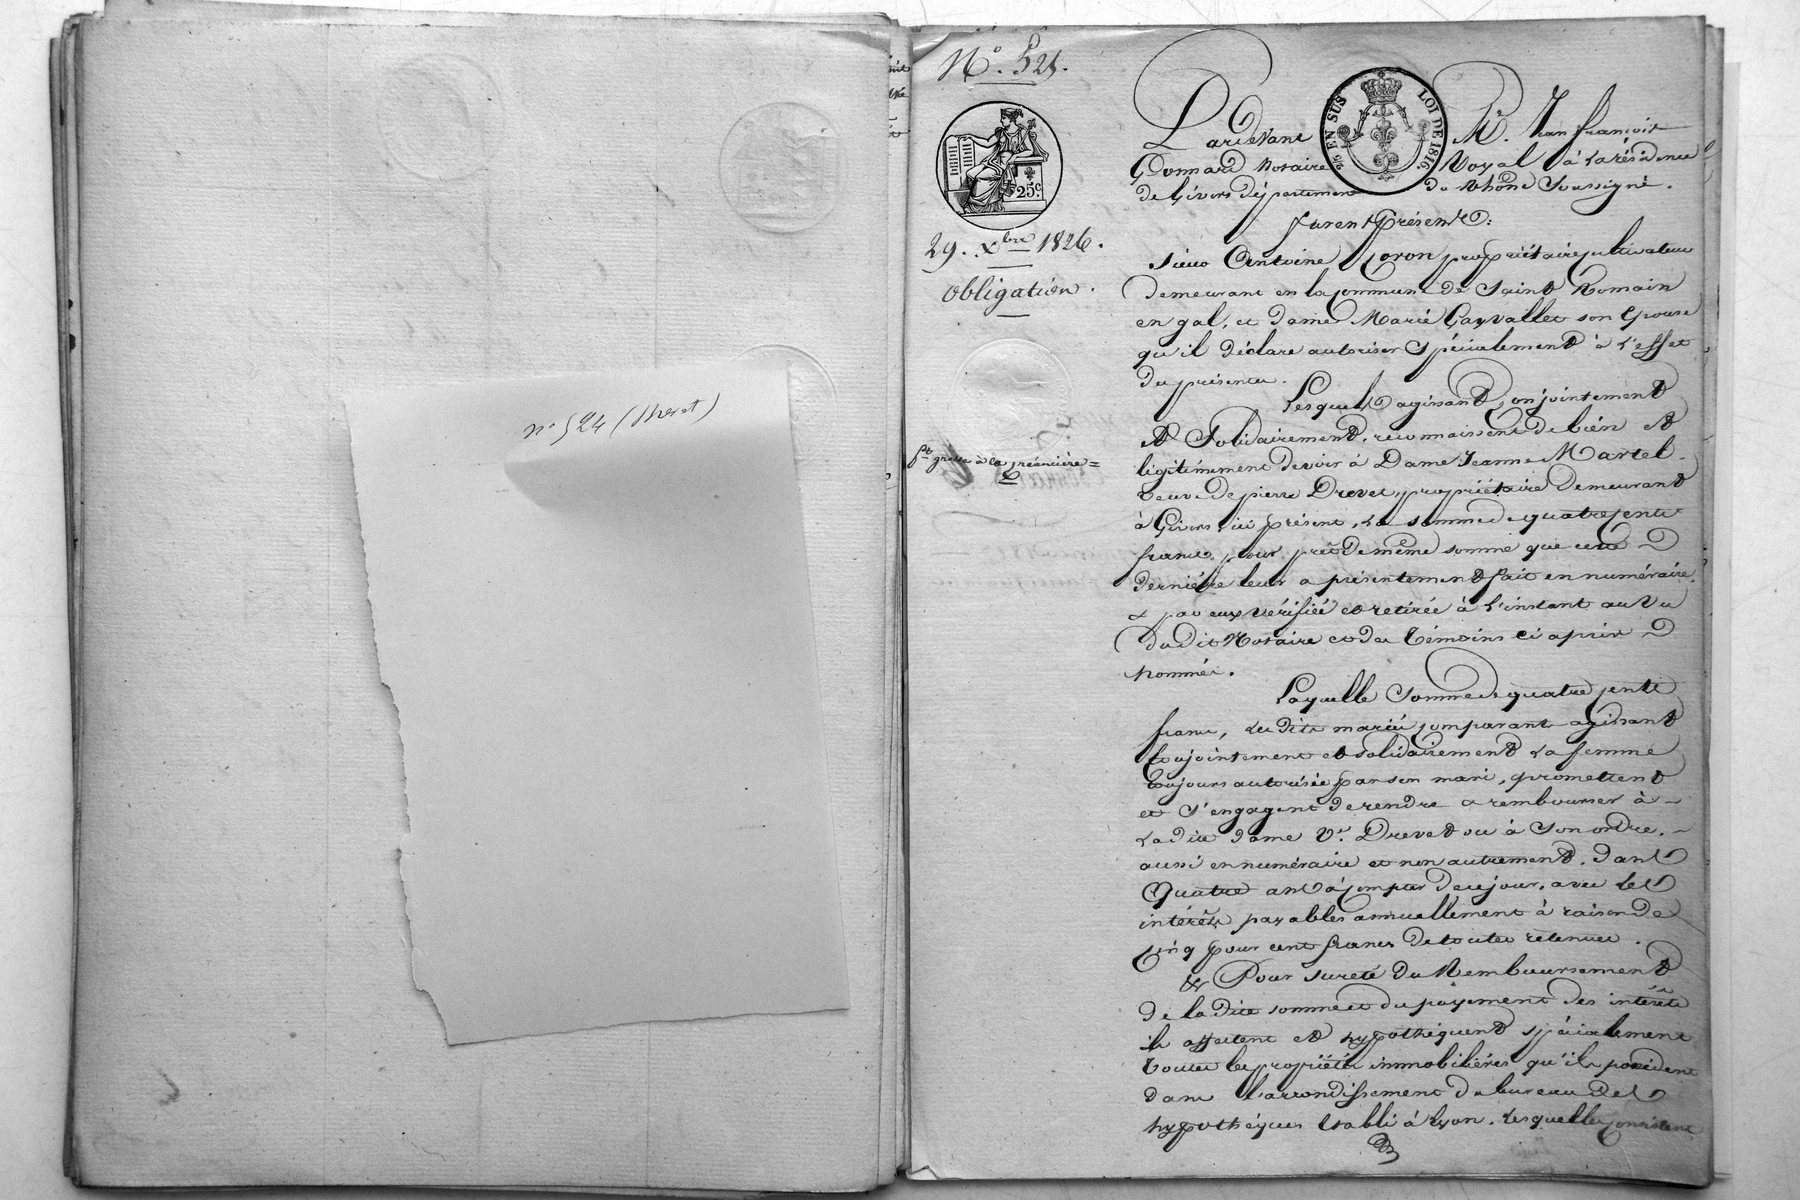 n° 524 (Brevet)
N°. 525.
25c.
2/5 EN SUS LOI DE 1816.
29. Xbre 1826.
Obligation.
ft grosse à la créancière =
Pardevant Me. Jean françois
Gonnard Notaire Royal à la résidence
de Givors département du Rhône Soussigné.
furent Présents:
Sieur Antoine Coron propriétaire cultivateur
demeurant en la commune de Saint Romain
en gal, et dame Marie Gayvallet son Epouse
qu'il déclare autoriser Spécialement à L'effet
des présentes.
Lesquels agissant conjointement
et Solidairement, reconnaissent de bien et
légitimement devoir à Dame Jeanne Martel.
Veuve de pierre Drevet, propriétaire demeurant
à Givors, ici présent, La somme de quatre cents
francs, pour prêt de même somme que cette
dernière leur a présentement fait en numéraire,
& par eux vérifiée et retirée à L'instant au Vu
du dit Notaire et des Témoins ci après
nommés.
Laquelle Somme de quatre cents
francs, Les dits mariés comparant agissant
Conjointement et solidairement La femme
toujours autorisée par son mari, promettent
et S'engagent de rendre & rembourser à
La dite dame Ve. Drevet ou à Son ordre,
aussi en numéraire et non autrement, dans
Quatre ans à compter de ce jour, avec Les
intérêts payables annuellement à raison de
Cinq pour cent francs de toutes retenues.
& Pour sureté du Remboursement
de la dite somme et du payement des intérêts
ils affectent et hypothéquent spécialement
toutes les propriétés immobilières qu'ils possèdent
dans l'arrondissement du bureau des
hypothéques établi à Lyon. Lesquelles Consistent